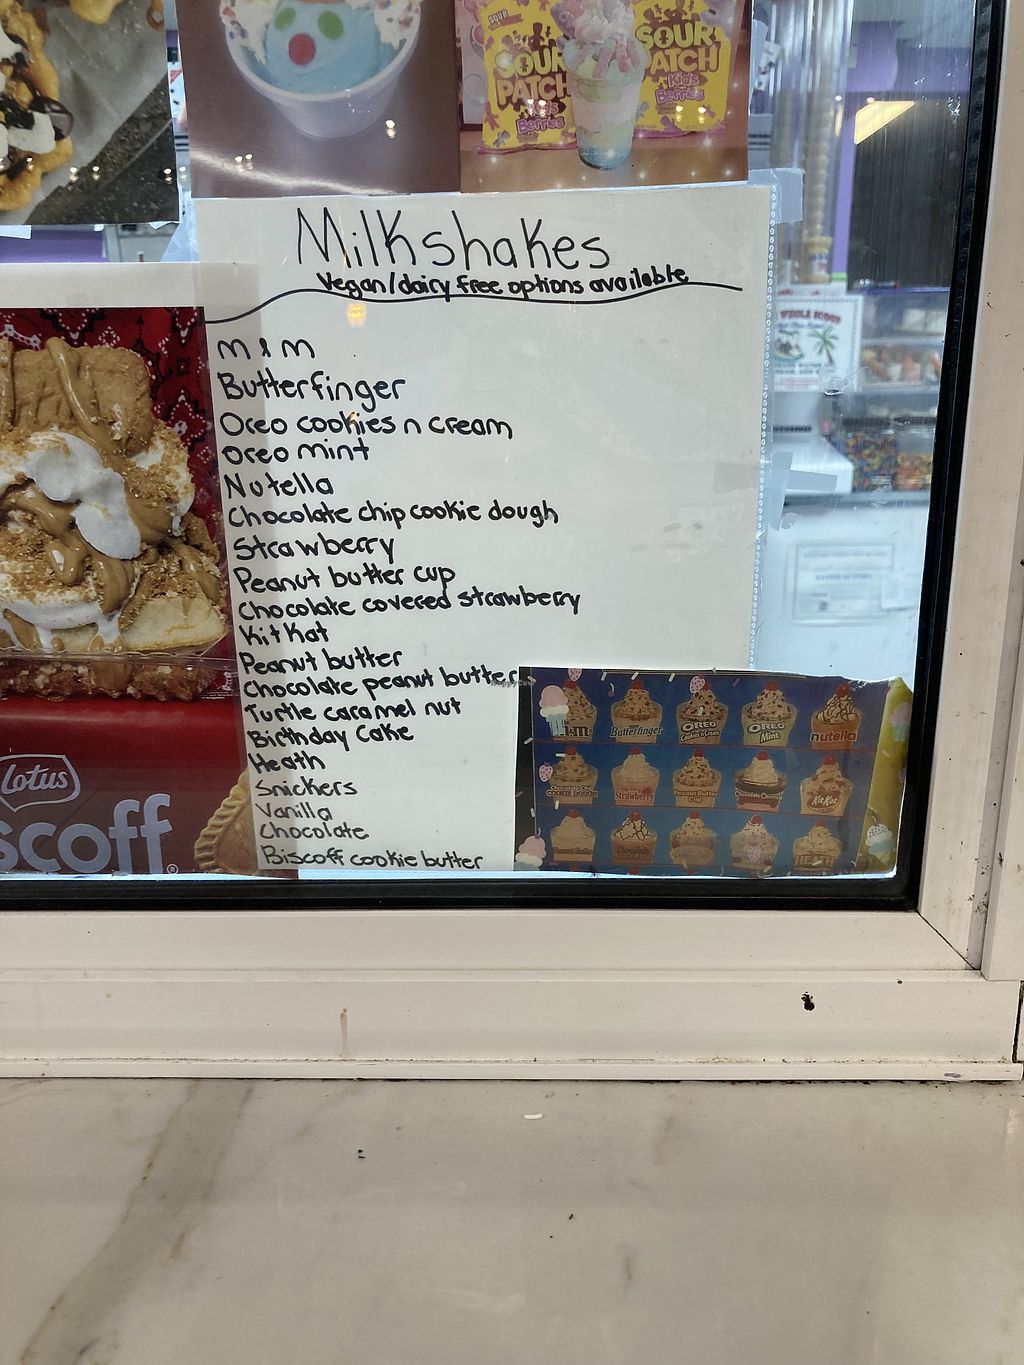 SOUR
SOUR
PATCH
Kids
Berries
SOUR
PATCH
Kids
Berries
Milkshakes
Vegan/dairy free options available
m & m
Butterfinger
Oreo cookies n cream
oreo mint
Nutella
Chocolate chip cookie dough
Strawberry
Peanut butter cup
Chocolate covered strawberry
Kit Kat
Peanut butter
Chocolate peanut butter
Turtle caramel nut
Birthday Cake
Heath
Snickers
Vanilla
Chocolate
Biscoff cookie butter
Lotus
scoff®
m&m's
Butterfinger
OREO
Cookies n Cream
OREO
Mint
nutella
Chocolate Chip
COOKIE DOUGH
Strawberry
Peanut Butter
Cup
Chocolate Covered
KitKat
Peanut Butter
Chocolate
HEATH
WHOLE SCOOP
HappyCow